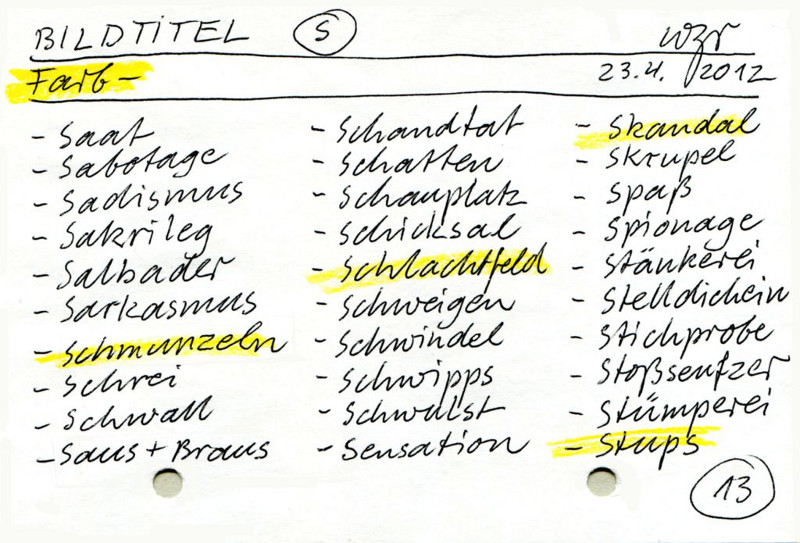 BILDTITEL S wzr
Farb- 23.4. 2012
- Saat
- Sabotage
- Sadismus
- Sakrileg
- Salbader
- Sarkasmus
- Schmunzeln
- Schrei
- Schwall
- Saus + Braus
- Schandtat
- Schatten
- Schauplatz
- Schicksal
- Schlachtfeld
- Schweigen
- Schwindel
- Schwipps
- Schwulst
- Sensation
- Skandal
- Skrupel
- Spaß
- Spionage
- Stänkerei
- Stelldichein
- Stichprobe
- Stoßseufzer
- Stümperei
- Stups
13